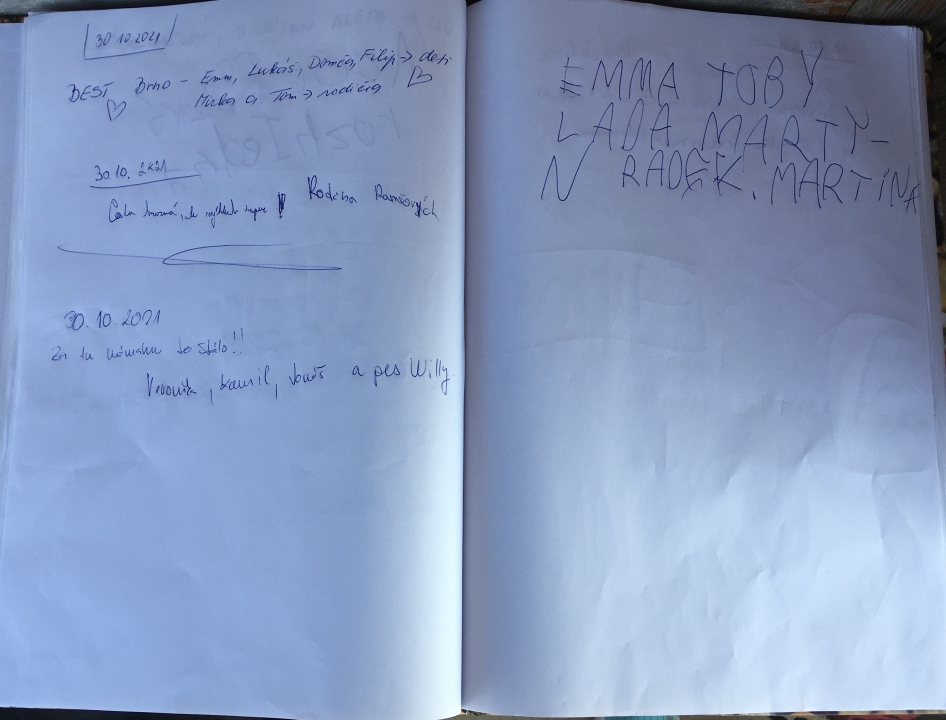 30.10.2021
BEST Brno - Emm, Lukáš, Domča, Filip → deti
Mirka a Tom → rodičia
30.10. 2k21
Cesta hrozná, ale Rodina
30.10.2021
Za tu námahu to stálo!!
Veronika, Kamil, Tomáš a pes Willy
EMMA TOBY
LADA MARTY-
N RADEK. MARTINA